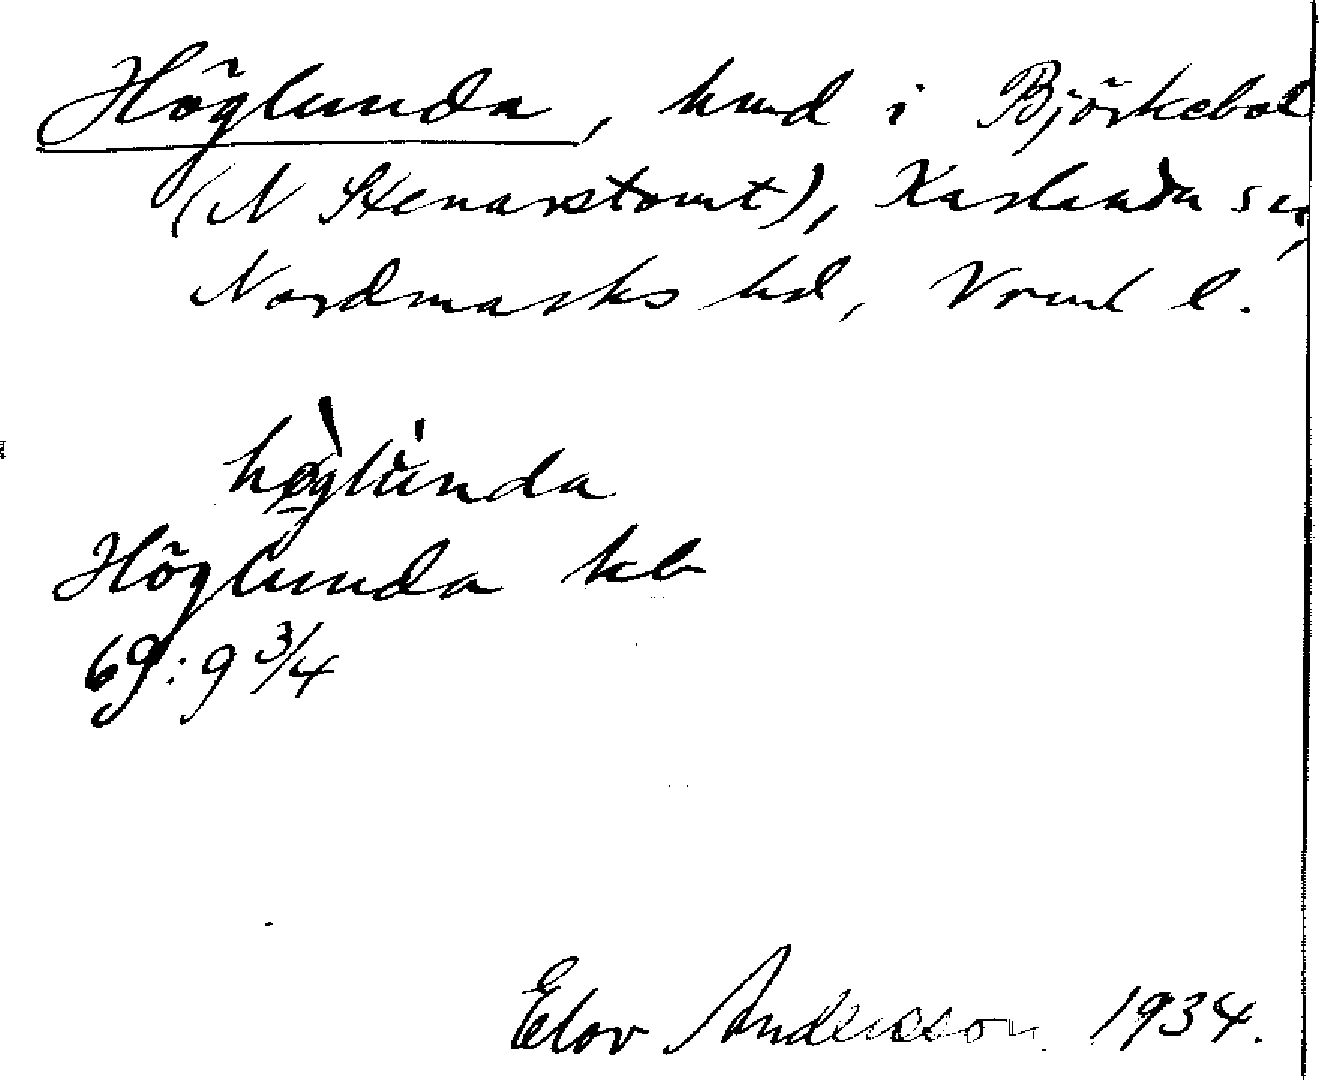 Höglunda, hmd i Björkebol
(N Stenarstomt), Karlanda sn,
Nordmarks hd, Vrml l.
høglunda
Höglunda kb
69:9 3/4
Elov Andersson 1934.